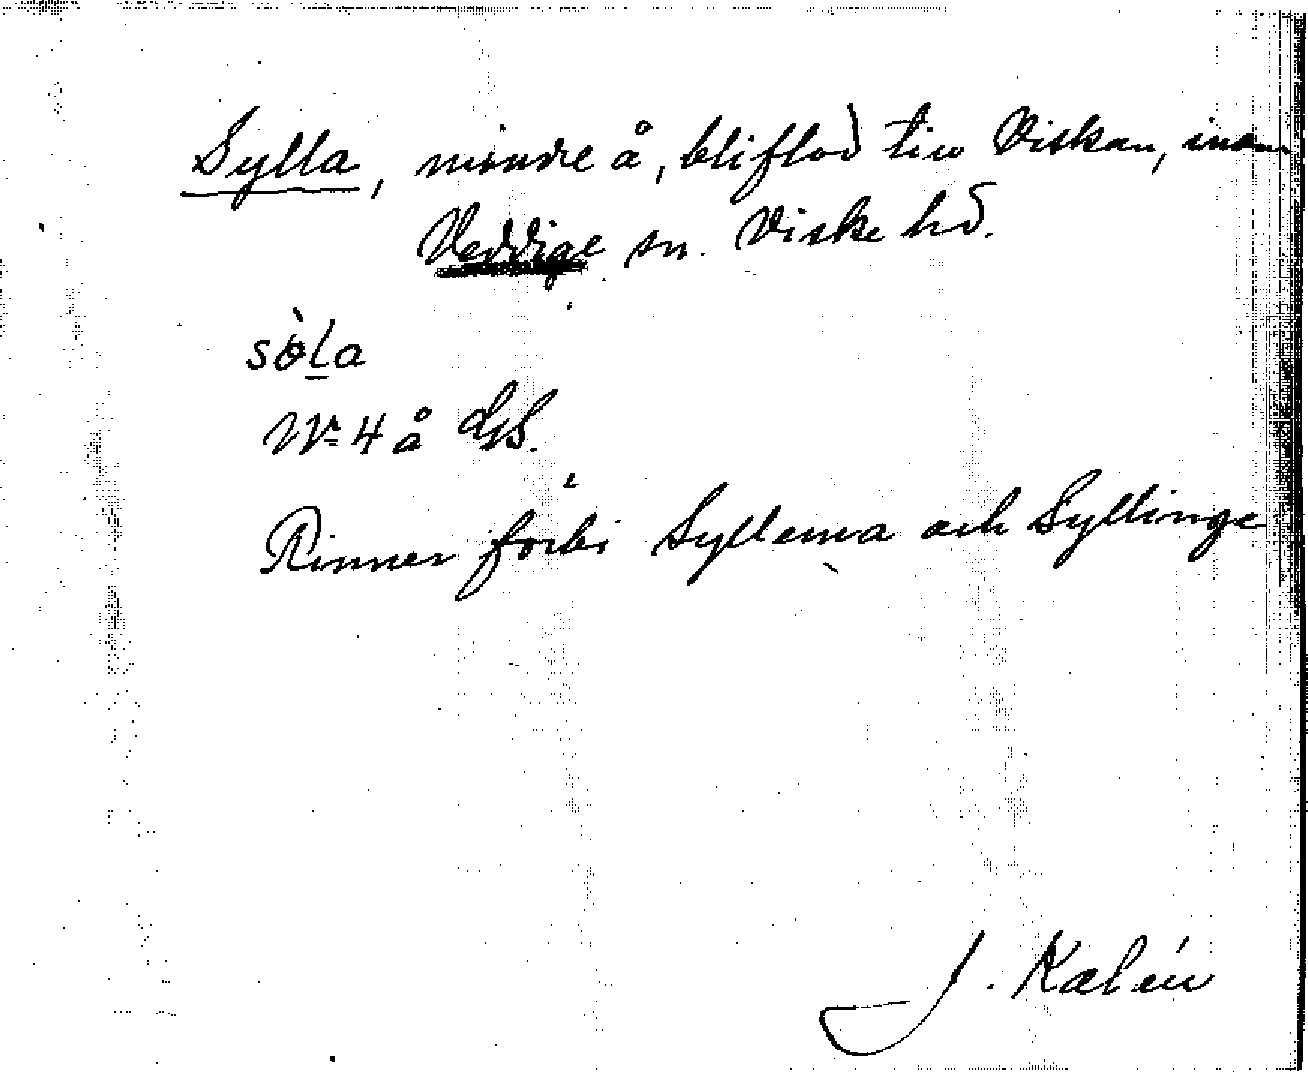 Sylla, mindre å, biflod till Viskan, inom
Veddige sn. Viske hd.
söla
Nr 4 å GS.
Rinner förbi Syllema och Syllinge
J. Kalén